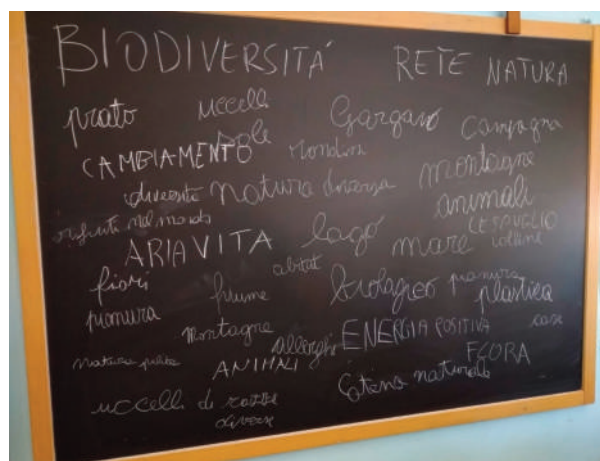 BIODIVERSITÁ RETE NATURA
prato uccelli Gargano campagna
sole
CAMBIAMENTO rondini montagne
natura diversa animali
rifiuti nel mondo CESPUGLIO
ARIA VITA lago mare colline
fiori abitat biologico pianura
pianura fiume plastica
montagne allerghi ENERGIA POSITIVA case
natura pulita ANIMALI FLORA
catena naturale
uccelli di razze
diverse